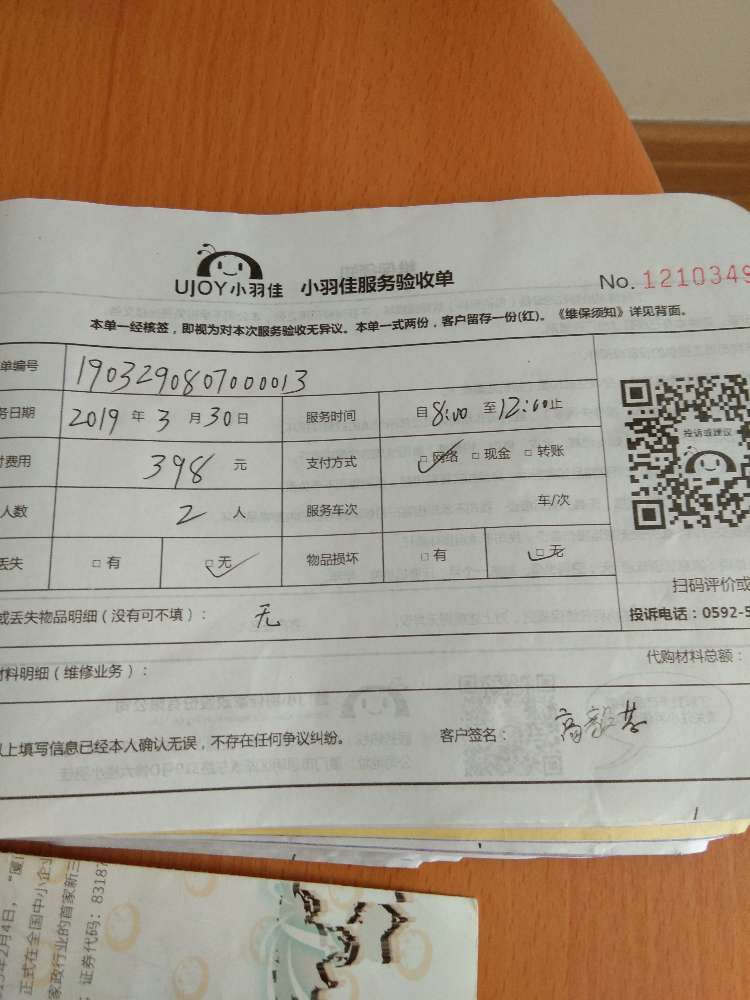 UJOY小羽佳 小羽佳服务验收单 No. 1210349
本单一经核签，即视为对本次服务验收无异议。本单一式两份，客户留存一份(红)。《维保须知》详见背面。
单编号 1903290807000013
务日期 2019 年 3 月 30 日 服务时间 自 8:00 至 12:00 止
费用 398 元 支付方式 □ 网络 □ 现金 □ 转账
人数 2 人 服务车次 车/次
投诉或建议
丢失 □ 有 □ 无 物品损坏 □ 有 □ 无
扫码评价或
或丢失物品明细（没有可不填）： 无
投诉电话：0592-5
材料明细（维修业务）：
代购材料总额：
以上填写信息已经本人确认无误，不存在任何争议纠纷。 客户签名：
2月4日，“厦
正式在全国中小企业
家政行业的首家新三
证券代码：83187